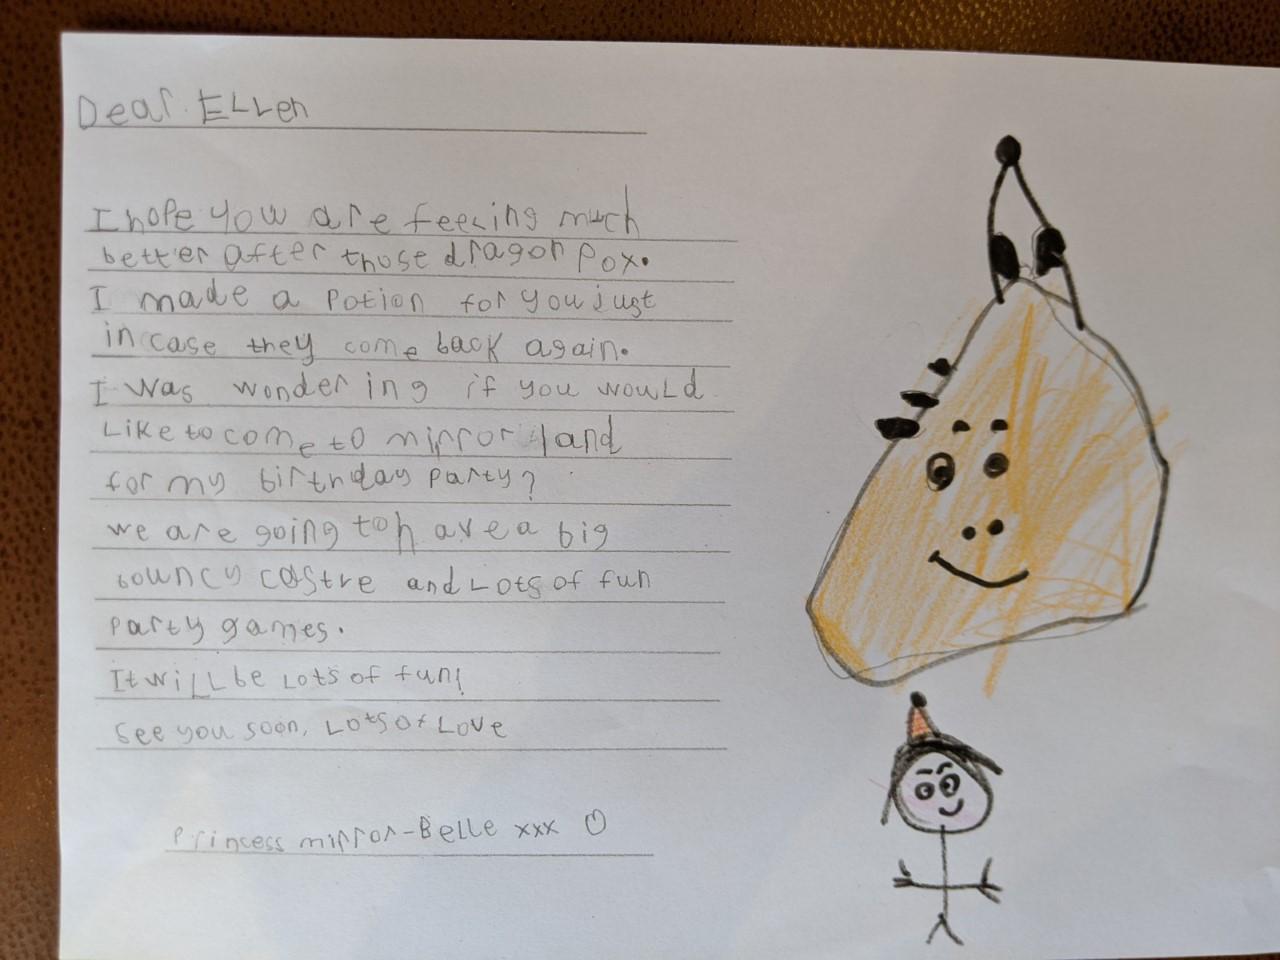 Dear Ellen
I hope you are feeling much
better after those dragon pox.
I made a potion for you just
in case they come back again.
I was wondering if you would
like to come to mirror land
for my birthday party?
we are going to have a big
bouncy castre and lots of fun
party games.
It will be lots of fun!
See you soon, Lots of Love
Princess mirror-Belle xxx